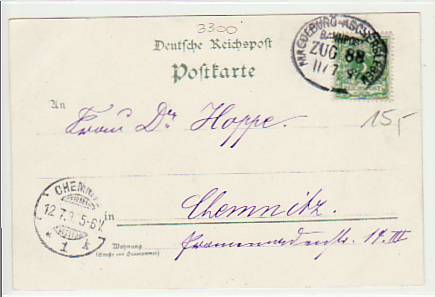 3300
Deutsche Reichspost
Postkarte
MAGDEBURG-ASCHERSLEBEN
BAHNPOST
ZUG 88
11/7
15,-
An
Frau Dr Hoppe.
CHEMNITZ
12.7. 5-6V.
* 1 k
in
Chemnitz.
Wohnung
(Straße und Hausnummer)
Promenadenstr. 19. III